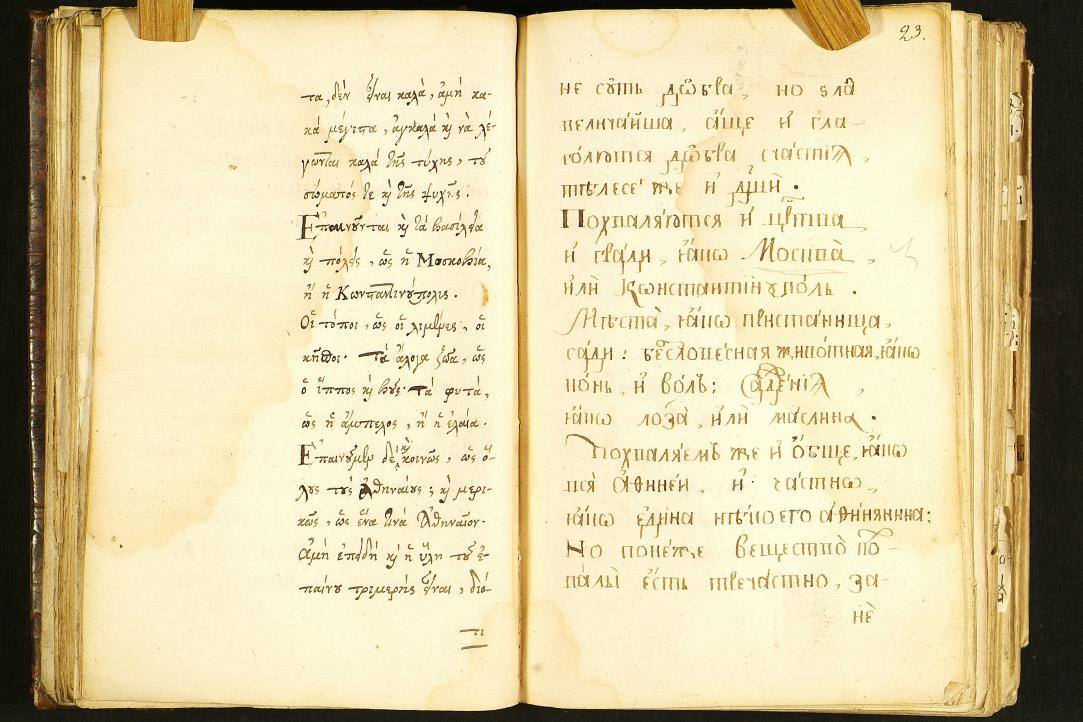 τα, δὲν εἶναι καλὰ, ἀμὴ κα-
κὰ μέγιστα, ἀγκαλὰ κỳ νὰ λέ-
γωνται καλὰ τῆς τύχης, τοῦ
σώματός τε κỳ τῆς ψυχῆς.
Ἐπαινοῦνται κỳ τὰ βασίλεια
κỳ πόλεις, ὡς ἡ Μοσκοβία,
ἢ ἡ Κωνσταντινούπολις.
Οἱ τόποι, ὡς οἱ λιμένες, οἱ
κῆποι· τὰ ἄλογα ζῶα, ὡς
ὁ ἵππος κỳ βοῦς· τὰ φυτὰ,
ὡς ἡ ἄμπελος, ἢ ἡ ἐλαία.
Ἐπαινοῦμεν δὲ κỳ κοινῶς, ὡς ὅ-
λους τοὺς Ἀθηναίους; κỳ μερι-
κῶς, ὡς ἕνα τινὰ Ἀθηναῖον.
Ἀμὴ ἐπειδὴ κỳ ἡ ὕλη τοῦ ἐ-
παίνου τριμερὴς εἶναι, διό-
τι
23.
не сꙋть дѡбра, но ѕла
величайша, аще и гла-
голютсѧ дѡбра счастїѧ,
тѣлесе же и дꙋши.
Похваляютсѧ и црства
и гради, ꙗкѡ Москва,
или Кѡнстантїнꙋполь.
Мѣста, ꙗкѡ пристанища,
сади: безсловеснаѧ животнаѧ, ꙗкѡ
конь, и волъ: садѣнїѧ,
ꙗкѡ лоза, или маслина.
Похваляемъ же и ѻбще, ꙗкѡ
всѧ Аѳинеи, и частнѡ,
ꙗкѡ едина нѣкоего аѳинянина:
Но понеже вещество по-
хвалы есть тричастно, за-
не